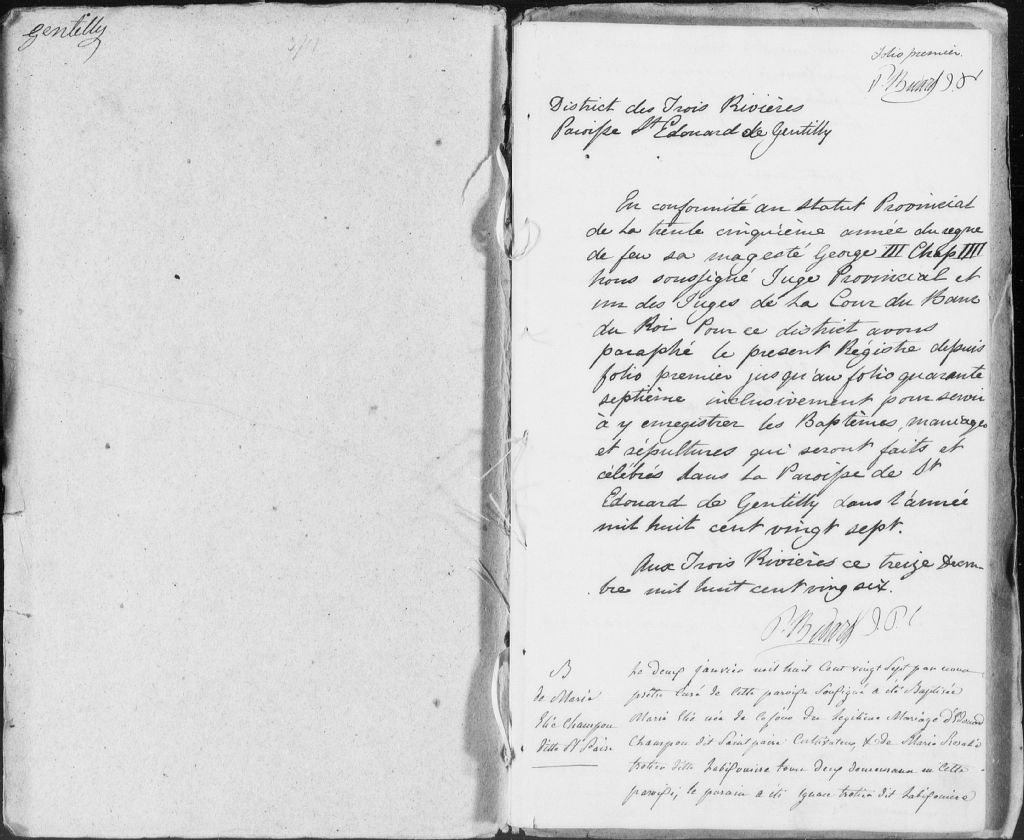 Gentilly
folio premier.
P. Bedard J. P.
District des Trois Rivières
Paroisse St Edouard de Gentilly
En conformité au statut Provincial
de la trente cinquième année du regne
de feu sa magesté George III Chap IIII
nous soussigné Juge Provincial et
un des Juges de la Cour du Banc
du Roi Pour ce district avons
paraphé le present Régistre depuis
folio premier jusqu'au folio quarante
septième inclusivement pour servir
à y enregistrer les Baptêmes, mariages
et sépultures qui seront faits et
célébrés dans la Paroisse de St
Edouard de Gentilly dans l'année
mil huit cent vingt sept.
Aux Trois Rivières ce treize Decem-
bre mil huit cent ving six.
P. Bedard J. P.
B
de Marie
Elie Champou
ditte St Paire
Le deux janvier mil huit Cent vingt Sept par nous
prêtre curé de Cette paroisse Soussigné a été Baptisée
Marie Elie née de Ce jour du legitime Mariage d'Edouard
Champou dit Saint paire Cultivateur, & de Marie Rosalie
trotier ditte labissoniere tous deux demeurans en Cette
paroisse; le parain a été Ignace trotier dit labissoniere